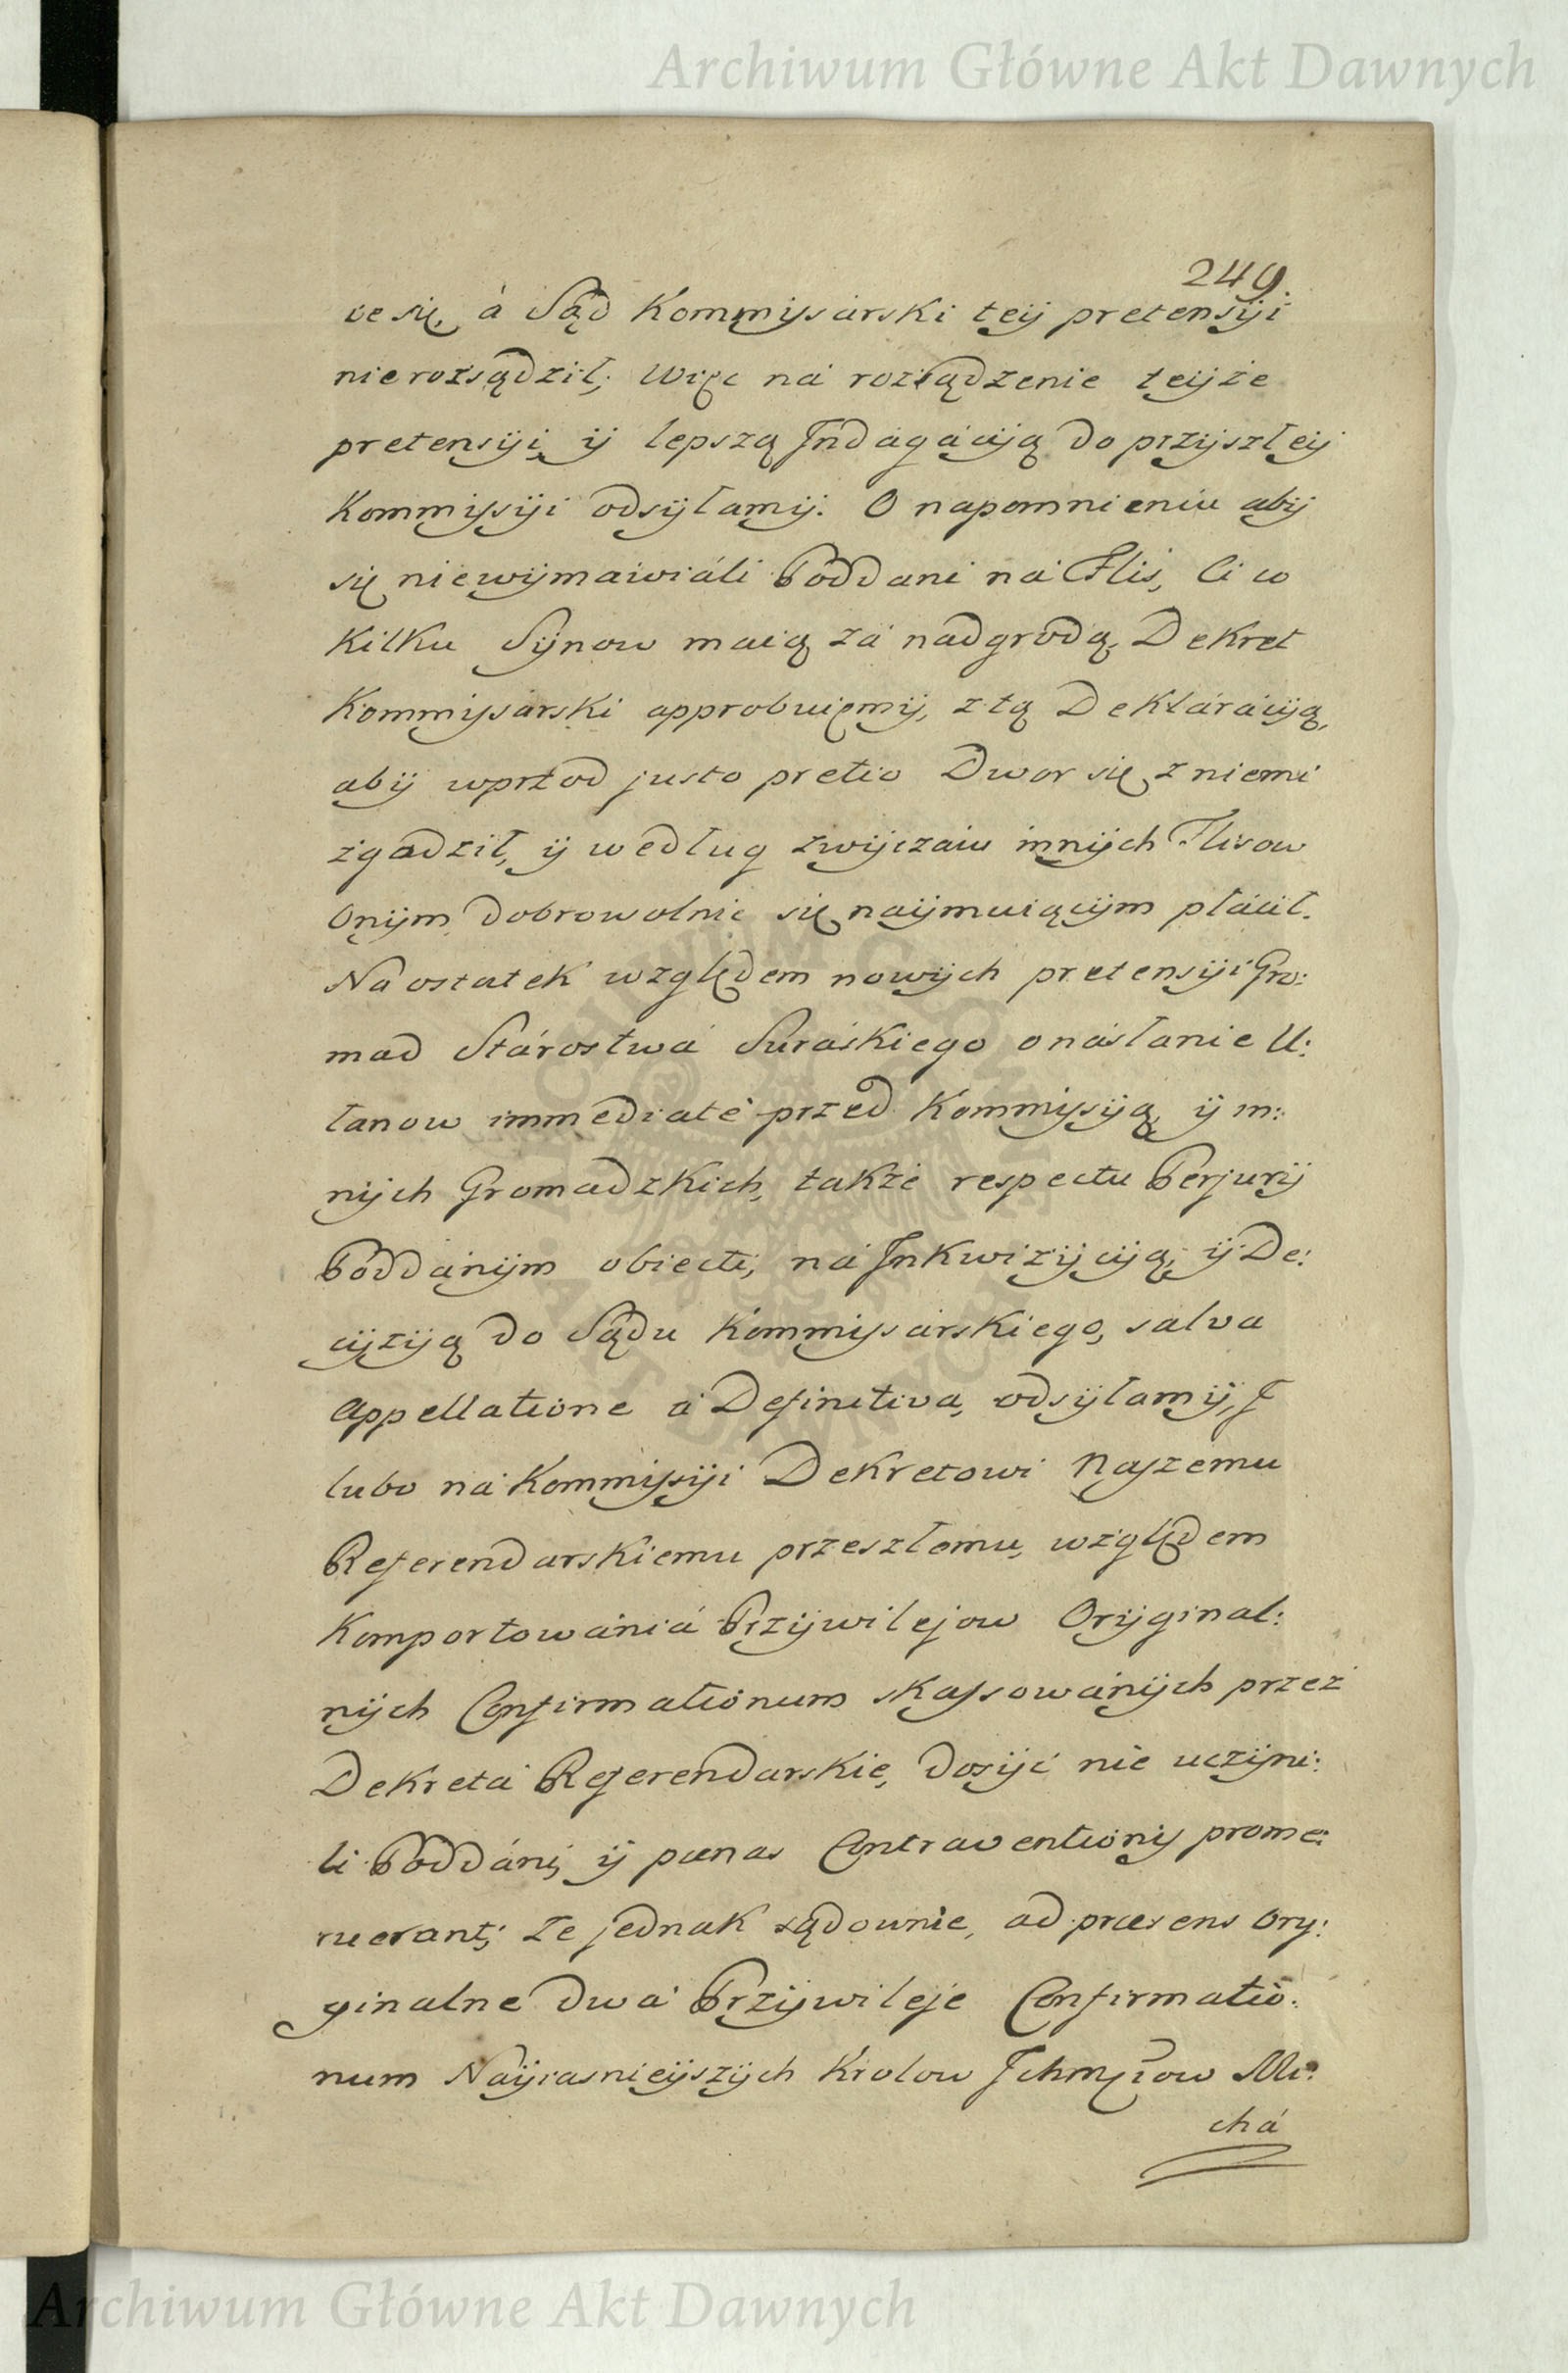 Archiwum Główne Akt Dawnych
249.
ce się, á Sąd Kommissarski teij pretensiji
nierozsądził; więc ná rozsądzenie teijże
pretensiji, ij lepszą Indagácią do przijszłeij
Kommissiji odsijłamij. O napomnieniu abij
się niewijmawiáli Poddani ná Flis, Ci co
kilku Sijnow maią zá nadgrodą, Dekret
Kommissarski approbuięmij, z tą Dekláráciją,
abij wprzod justo pretio Dwor się z niemi
zgadził, ij według zwijczaiu innijch Flisow
Onijm dobrowolnie się naijmuiącijm płácił.
Ná ostatek względem nowijch pretensiji Gro:
mad Stárostwá Suráskiego o násłanie U:
łanow immediaté przed Kommissiją, ij in:
nijch Gromadzkich, także respectu Perjurij
Poddánijm obiecti, ná Inkwizijciją, ij De:
cijziją do Sądu Kommissarskiego, salva
Appellatione á Definitiva, odsijłamij, I
lubo ná Kommissiji Dekretowi Naszemu
Referendarskiemu przeszłemu, względem
Komportowániá Przijwilejow Orijginal:
nijch Confirmationum skassowánijch przez
Dekretá Referendarskie, dosijć nie uczijni:
li Poddáni, ij pænas Contraventionis prome:
ruerant; że jednak sądownie, ad præsens Ory:
ginalne dwá Przijwileje Confirmatio:
num Naijiasnieijszijch Krolow Ichmciow Mi:
chá
Archiwum Główne Akt Dawnych